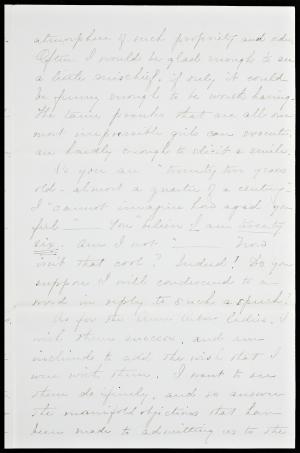 atmosphere of such propriety and
Often I would be glad enough to see
a little mischief, if only it could
be funny enough to be worth having.
The tame pranks that are all our
most irrepressible girls can execute,
are hardly enough to elicit a smile.
So you are "twenty two years
old - almost a quarter of a century -
I "cannot imagine how aged you
feel" — "You" believe I am twenty
six. Am I not" — Now
isn't that cool? Indeed! Do you
suppose I will condescend to a
word in reply to such a speech?
As for the Ann Arbor ladies, I
wish them success, and am
inclined to add the wish that I
were with them. I want to see
them do finely, and so answer
the manifold objections that have
been made to admitting us to the